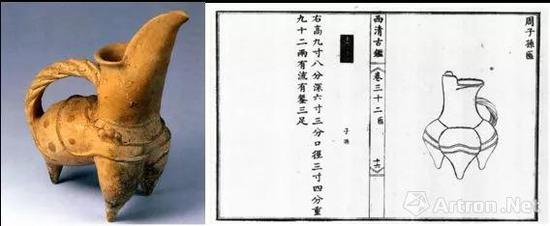 周子孫匜
西清古鑑
卷三十二 匜
十六
子孫
右高九寸八分深六寸三分口徑三寸四分重
九十二兩有流有鋬三足
Artron.Net